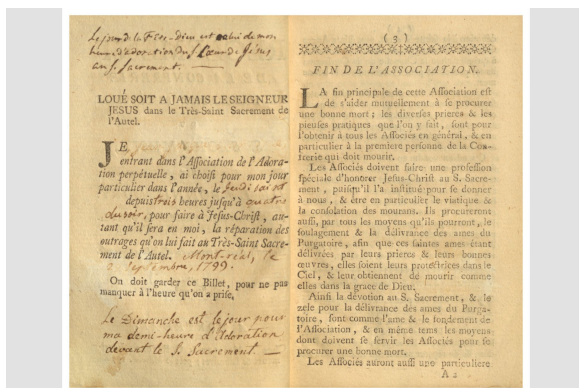 Le jour de la Fête-Dieu est celui de mon
heure d'adoration du S. Cœur de Jésus,
au S. Sacrement. —
LOUÉ SOIT A JAMAIS LE SEIGNEUR
JESUS dans le Très-Saint Sacrement de
l'Autel.
JE
entrant dans l'Association de l'Adora-
tion perpétuelle, ai choisi pour mon jour
particulier dans l'année, le jeudi saint
depuis trois heures jusqu'à quatre
du soir, pour faire à Jesus-Christ, au-
tant qu'il sera en moi, la réparation des
outrages qu'on lui fait au Très-Saint Sacre-
ment de l'Autel. Montréal, le
Septembre, 1799.
On doit garder ce Billet, pour ne pas
manquer à l'heure qu'on a prise,
Le Dimanche est le jour pour
ma demi-heure d'Adoration
devant le S. Sacrement. —
( 3 )
FIN DE L'ASSOCIATION.
LA fin principale de cette Association est
de s'aider mutuellement à se procurer
une bonne mort ; les diverses prieres & les
pieuses pratiques que l'on y fait, sont pour
l'obtenir à tous les Associés en général, & en
particulier à la premiere personne de la Con-
frerie qui doit mourir.
Les Associés doivent faire une profession
spéciale d'honorer Jesus-Christ au S. Sacre-
ment, puisqu'il l'a institué pour se donner
à nous, & être en particulier le viatique &
la consolation des mourans. Ils procureront
aussi, par tous les moyens qu'ils pourront, le
soulagement & la délivrance des ames du
Purgatoire, afin que ces saintes ames étant
délivrées par leurs prieres & leurs bonnes
œuvres, elles soient leurs protectrices dans le
Ciel, & leur obtiennent de mourir comme
elles dans la grace de Dieu.
Ainsi la dévotion au S. Sacrement, & le
zele pour la délivrance des ames du Purga-
toire, sont comme l'ame & le fondement de
l'Association, & en même tems les moyens
dont doivent se servir les Associés pour se
procurer une bonne mort.
Les Associés auront aussi une particuliere
A 2